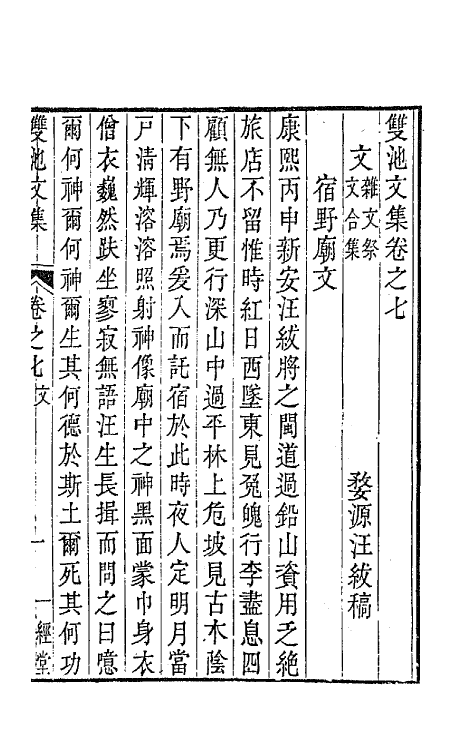 雙池文集卷之七
文 雜文祭文合集 婺源汪紱稿
宿野廟文
康熙丙申新安汪紱將之閩道過鉛山資用乏絶
旅店不留惟時紅日西墜東見兔魄行李盡息四
顧無人乃更行深山中過平林上危坡見古木陰
下有野廟焉爰入而託宿於此時夜人定明月當
戸淸輝溶溶照射神像廟中之神黑面蒙巾身衣
僧衣巍然趺坐寥寂無語汪生長揖而問之曰噫
爾何神爾何神爾生其何德於斯土爾死其何功
雙池文集 卷之七 文 一 一經堂